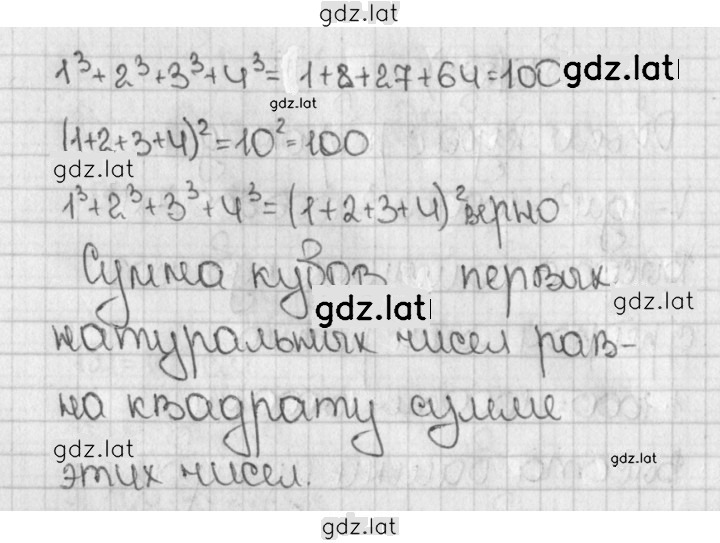 gdz.lat
1³+2³+3³+4³= 1+8+27+64=100 gdz.lat
gdz.lat
(1+2+3+4)²=10²=100
gdz.lat
1³+2³+3³+4³=(1+2+3+4)² верно
Сумма кубов первых
gdz.lat gdz.lat
натуральных чисел рав-
на квадрату сумме
gdz.lat gdz.lat
этих чисел.
gdz.lat